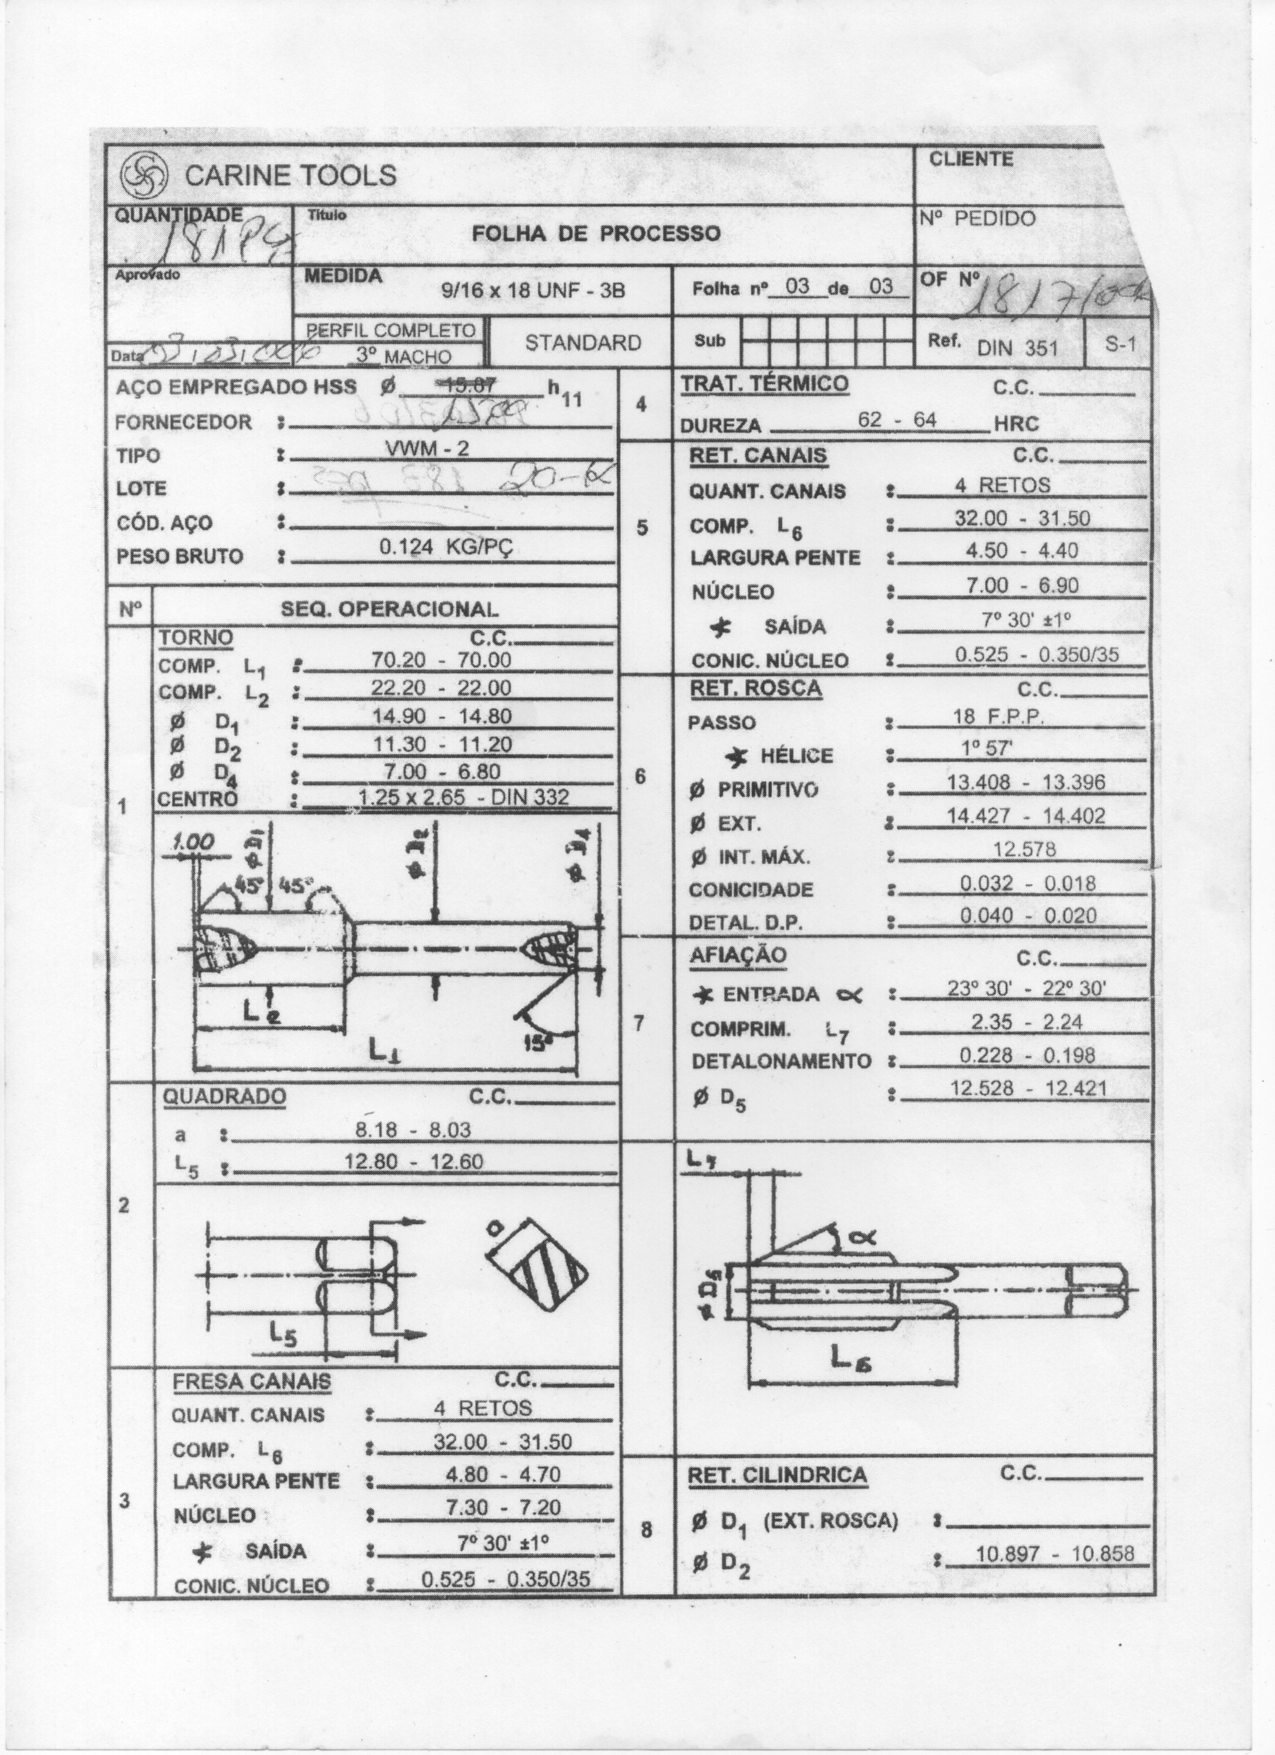 CARINE TOOLS
CLIENTE
QUANTIDADE
Título
FOLHA DE PROCESSO
Nº PEDIDO
Aprovado
MEDIDA
9/16 x 18 UNF - 3B
Folha nº 03 de 03
OF Nº
Data
PERFIL COMPLETO
3º MACHO
STANDARD
Sub
Ref. DIN 351
S-1
AÇO EMPREGADO HSS Ø 15.87 h11
FORNECEDOR :
TIPO : VWM - 2
LOTE :
CÓD. AÇO :
PESO BRUTO : 0.124 KG/PÇ
Nº SEQ. OPERACIONAL
1
TORNO C.C.
COMP. L1 : 70.20 - 70.00
COMP. L2 : 22.20 - 22.00
Ø D1 : 14.90 - 14.80
Ø D2 : 11.30 - 11.20
Ø D4 : 7.00 - 6.80
CENTRO : 1.25 x 2.65 - DIN 332
1.00
45° 45°
Ø D1
Ø D2
Ø D4
L2
L1
15°
2
QUADRADO C.C.
a : 8.18 - 8.03
L5 : 12.80 - 12.60
a
L5
3
FRESA CANAIS C.C.
QUANT. CANAIS : 4 RETOS
COMP. L6 : 32.00 - 31.50
LARGURA PENTE : 4.80 - 4.70
NÚCLEO : 7.30 - 7.20
SAÍDA : 7º 30' ±1º
CONIC. NÚCLEO : 0.525 - 0.350/35
4
TRAT. TÉRMICO C.C.
DUREZA 62 - 64 HRC
5
RET. CANAIS C.C.
QUANT. CANAIS : 4 RETOS
COMP. L6 : 32.00 - 31.50
LARGURA PENTE : 4.50 - 4.40
NÚCLEO : 7.00 - 6.90
SAÍDA : 7º 30' ±1º
CONIC. NÚCLEO : 0.525 - 0.350/35
6
RET. ROSCA C.C.
PASSO : 18 F.P.P.
HÉLICE : 1º 57'
Ø PRIMITIVO : 13.408 - 13.396
Ø EXT. : 14.427 - 14.402
Ø INT. MÁX. : 12.578
CONICIDADE : 0.032 - 0.018
DETAL. D.P. : 0.040 - 0.020
7
AFIAÇÃO C.C.
ENTRADA α : 23º 30' - 22º 30'
COMPRIM. L7 : 2.35 - 2.24
DETALONAMENTO : 0.228 - 0.198
Ø D5 : 12.528 - 12.421
L7
α
Ø D5
L6
8
RET. CILINDRICA C.C.
Ø D1 (EXT. ROSCA) :
Ø D2 : 10.897 - 10.858